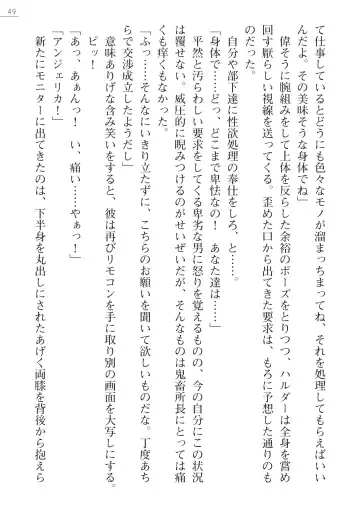 49
て仕事しているとどうにも色々なモノが溜まっちまってね、それを処理してもらえばいい
んだよ。その美味そうな身体でね」
偉そうに腕組みをして上体を反らした余裕のポーズをとりつつ、ハルダーは全身を嘗め
回す厭らしい視線を送ってくる。歪めた口から出てきた要求は、もろに予想した通りのも
のだった。
自分や部下達に性欲処理の奉仕をしろ、と……。
「身体で……どっ、どこまで卑怯なの！　あなた達は……」
平然と汚らわしい要求をしてくる卑劣な男に怒りを覚えるものの、今の自分にこの状況
は覆せない。威圧的に睨みつけるのがせいぜいだが、そんなものは鬼畜所長にとっては痛
くも痒くもなかった。
「ふっ……そんなにいきり立たずに、こちらのお願いを聞いて欲しいものだな。丁度あち
らで交渉成立したようだし」
意味ありげな含み笑いをすると、彼は再びリモコンを手に取り別の画面を大写しにする。
ピッ！
「あっ、あぁんっ！　い、痛い……やぁっ！」
「アンジェリカ！」
新たにモニターに出てきたのは、下半身を丸出しにされたあげく両膝を背後から抱えら